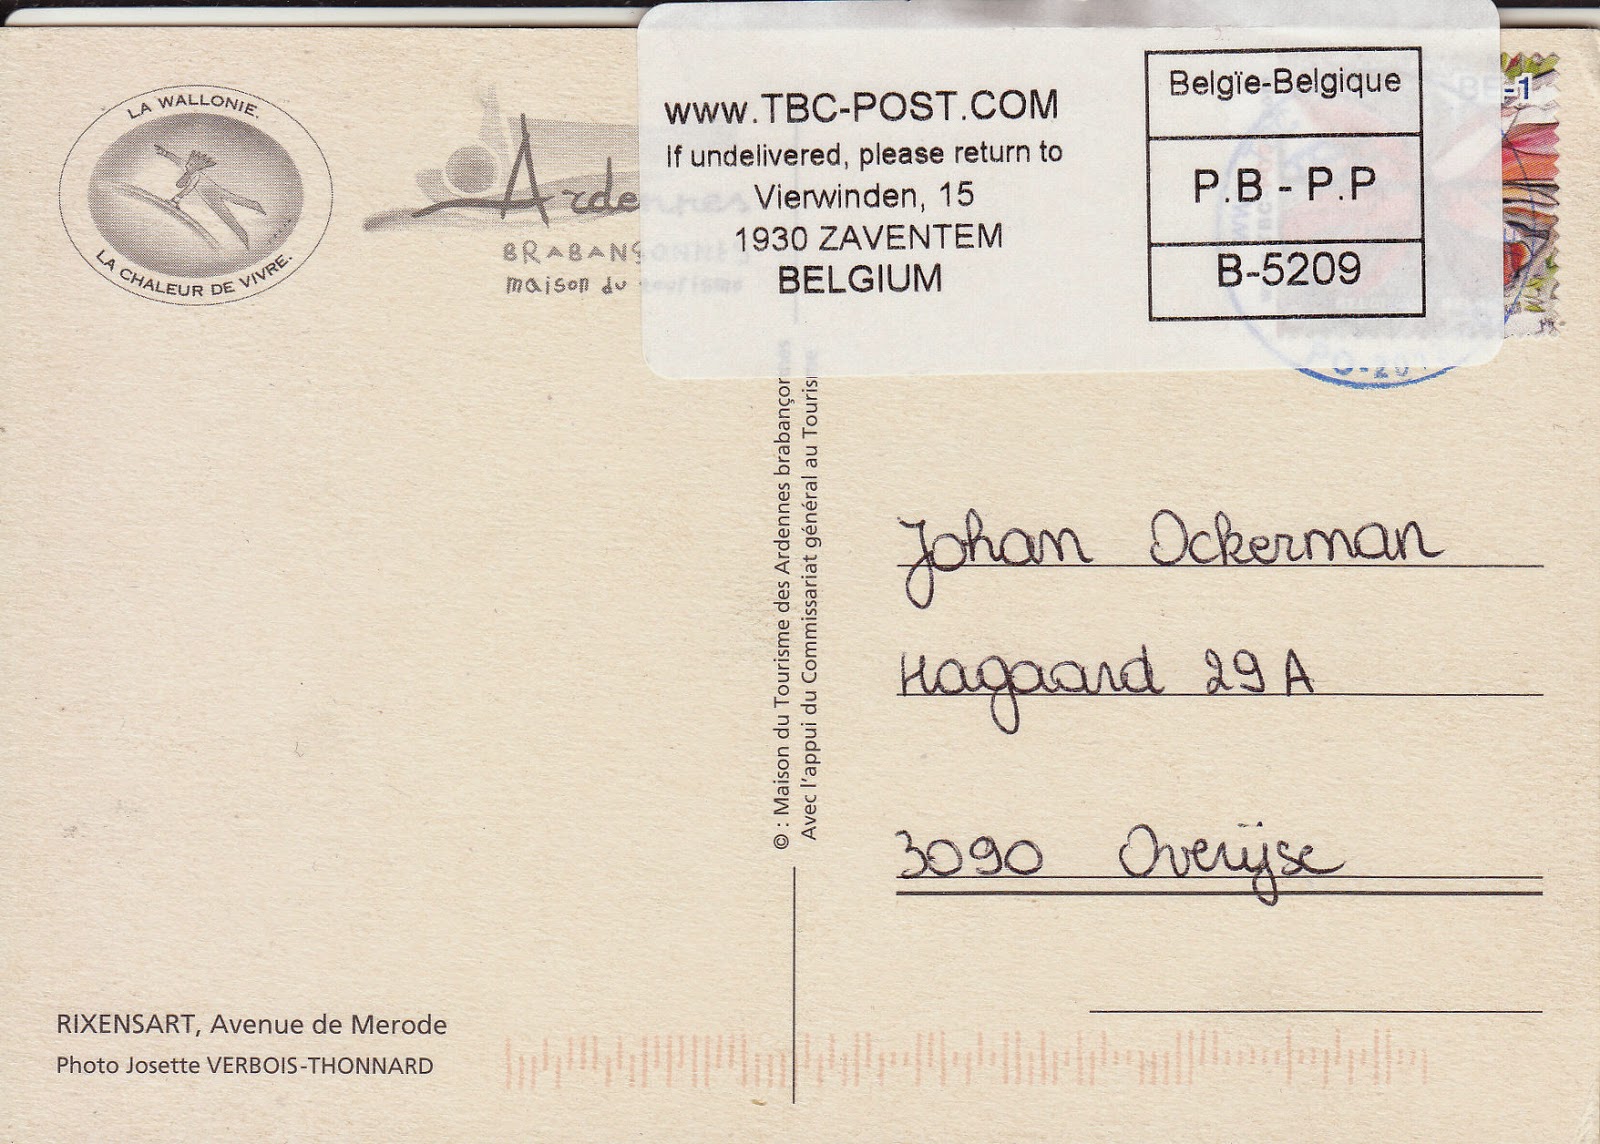 LA WALLONIE.
LA CHALEUR DE VIVRE.
Ardennes
BRABANÇONNES
maison du tourisme
www.TBC-POST.COM
If undelivered, please return to
Vierwinden, 15
1930 ZAVENTEM
BELGIUM
Belgïe-Belgique
P.B - P.P
B-5209
-1
© : Maison du Tourisme des Ardennes brabançonnes
Avec l'appui du Commissariat général au Tourisme
Johan Ockerman
Hagaard 29A
3090 Overijse
RIXENSART, Avenue de Merode
Photo Josette VERBOIS-THONNARD